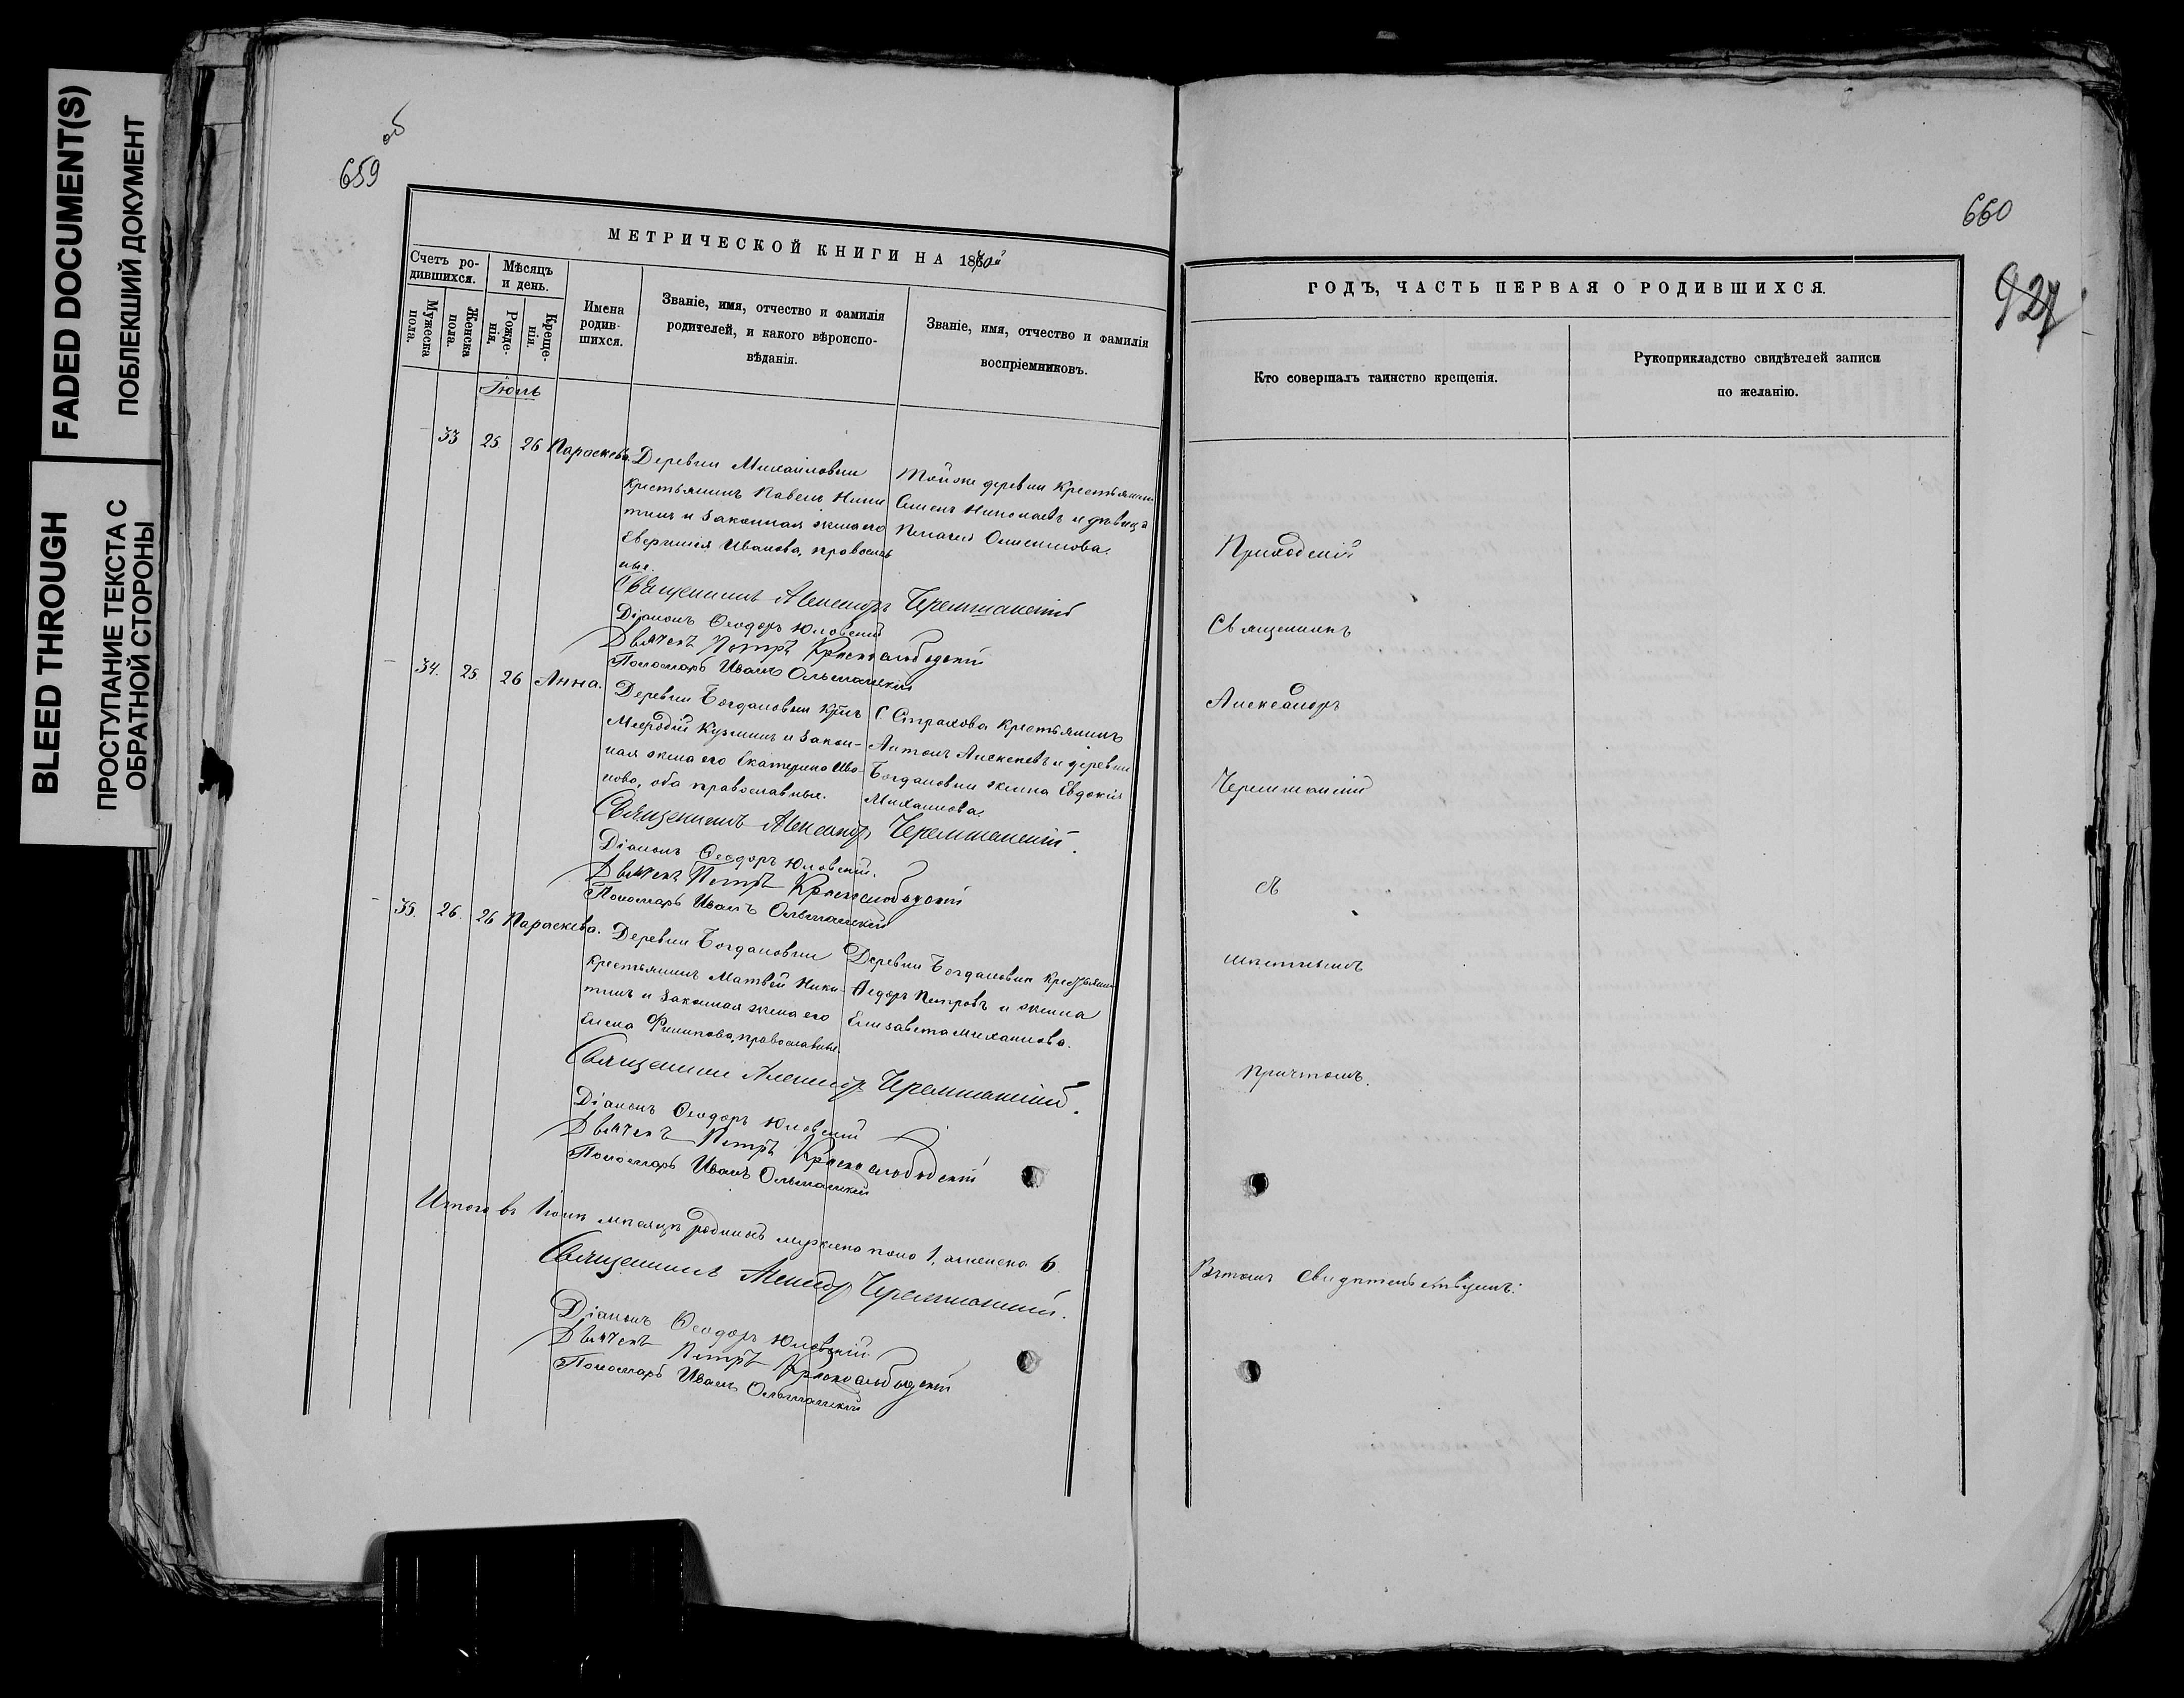 FADED DOCUMENT(S)
ПОБЛЕКШИЙ ДОКУМЕНТ
BLEED THROUGH
ПРОСТУПАНИЕ ТЕКСТА С
ОБРАТНОЙ СТОРОНЫ
об
659
МЕТРИЧЕСКОЙ КНИГИ НА 1870й
Счетъ ро-
дившихся.
Мужеска
пола.
Женска
пола.
Мѣсяцъ
и день.
Рожде-
нія.
Креще-
нія.
Имена
родив-
шихся.
Званіе, имя, отчество и фамилія
родителей, и какого вѣроиспо-
вѣданія.
Званіе, имя, отчество и фамилія
воспріемниковъ.
Іюль
33 25 26 Параскева.
Деревни Михайловки
крестьянинъ Павелъ Ники
тинъ и законная жена его
Иванова, православ
ные.
Тойже деревни крестьянинъ
Николаевъ и дѣвица
Пелагея
Священникъ Александръ Черемшанскій
Діаконъ Ѳеодоръ Юловскій
Дьячекъ Петръ Краснослободскій
Пономарь Иванъ Ольшанскій
34. 25 26 Анна.
Деревни Богдановки
Меѳодій Кузминъ и закон-
ная жена его Екатерина Ива-
нова, оба православные.
С. Страхова крестьянинъ
Антонъ Алексеевъ и деревни
Богдановки жена Евдокія
Михаилова.
Священникъ Александръ Черемшанскій.
Діаконъ Ѳеодоръ Юловскій.
Дьячекъ Петръ Краснослободскій
Пономарь Иванъ Ольшанскій
35. 26. 26 Параскева.
Деревни Богдановки
крестьянинъ Матвей Ники-
тинъ и законная жена его
Елена Филипова, православные.
Деревни Богдановки крестьянинъ
Ѳедоръ Петровъ и жена
Елизавета Михаилова.
Священникъ Александръ Черемшанскій.
Діаконъ Ѳеодоръ Юловскій
Дьячекъ Петръ Краснослободскій
Пономарь Иванъ Ольшанскій
Итого въ Іюлѣ мѣсяцѣ мужеска пола 1, женска 6
Священникъ Александръ Черемшанскій.
Діаконъ Ѳеодоръ Юловскій
Дьячекъ Петръ Краснослободскій
Пономарь Иванъ Ольшанскій
660
927
ГОДЪ, ЧАСТЬ ПЕРВАЯ О РОДИВШИХСЯ.
Кто совершалъ таинство крещенія.
Рукоприкладство свидѣтелей записи
по желанію.
Приходскій
Священникъ
Александръ
Черемшанскій
съ
причтомъ.
Въ томъ свидѣтельствуемъ: